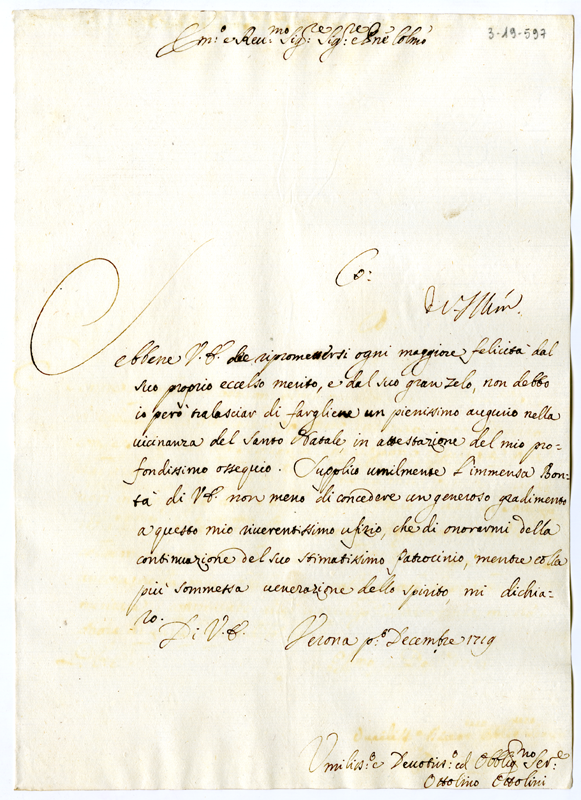 3-19-597
Em.o e Reu.mo Sig.re Sig.re e Pne Colmo
Co:
Sebbene V.E. dee ripromettersi ogni maggiore felicità dal
suo proprio eccelso merito, e dal suo gran zelo, non debbo
io però tralasciar di fargliene un pienissimo augurio nella
vicinanza del Santo Natale, in attestazione del mio pro-
fondissimo ossequio. Supplico umilmente l'immensa Bon-
tà di V.E. non meno di concedere un generoso gradimento
a questo mio riverentissimo ufizio, che di onorarmi della
continuazione del suo stimatissimo Patrocinio, mentre colla
più sommessa venerazione dello spirito, mi dichia-
ro.
Di V.E. Verona p.o Decembre 1719
Vmiliss.o e Deuotiss.o ed Obblig.mo Ser.e
Ottolino Ottolini